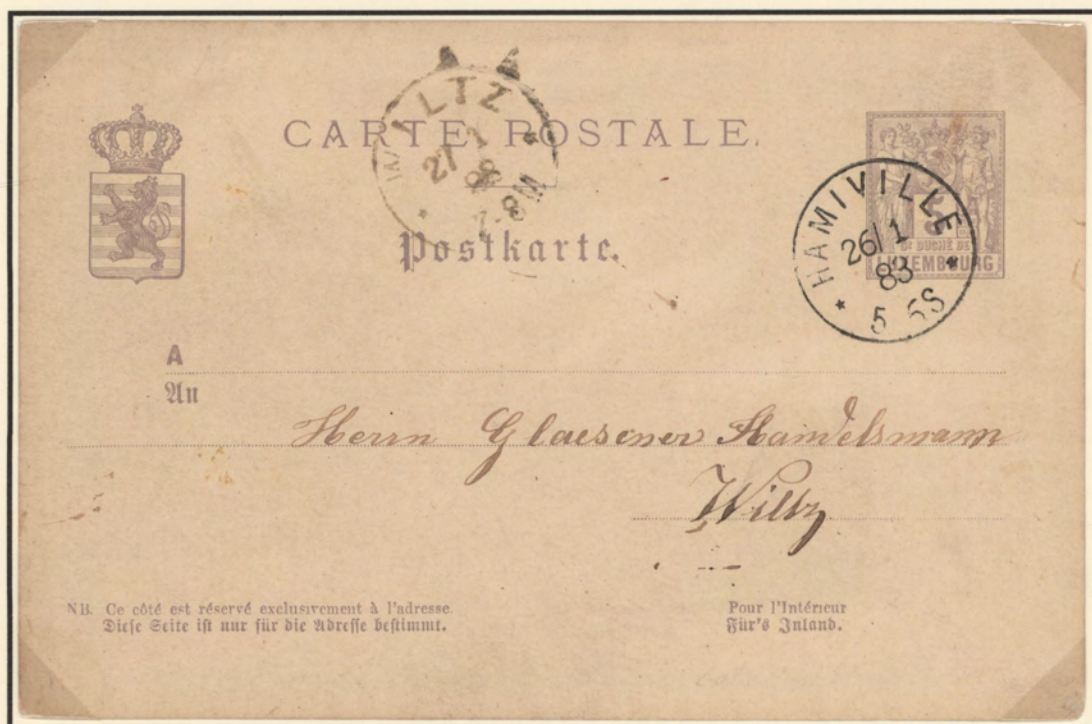 WILTZ
27 1
7-8M
CARTE POSTALE.
Postkarte.
Gd DUCHÉ DE
LUXEMBOURG
HAMIVILLE
26/1
83
5 6S
A
An
Herrn Glaesener Handelsmann
Wiltz
NB. Ce côté est réservé exclusivement à l'adresse.
Diese Seite ist nur für die Adresse bestimmt.
Pour l'Intérieur
Für's Inland.